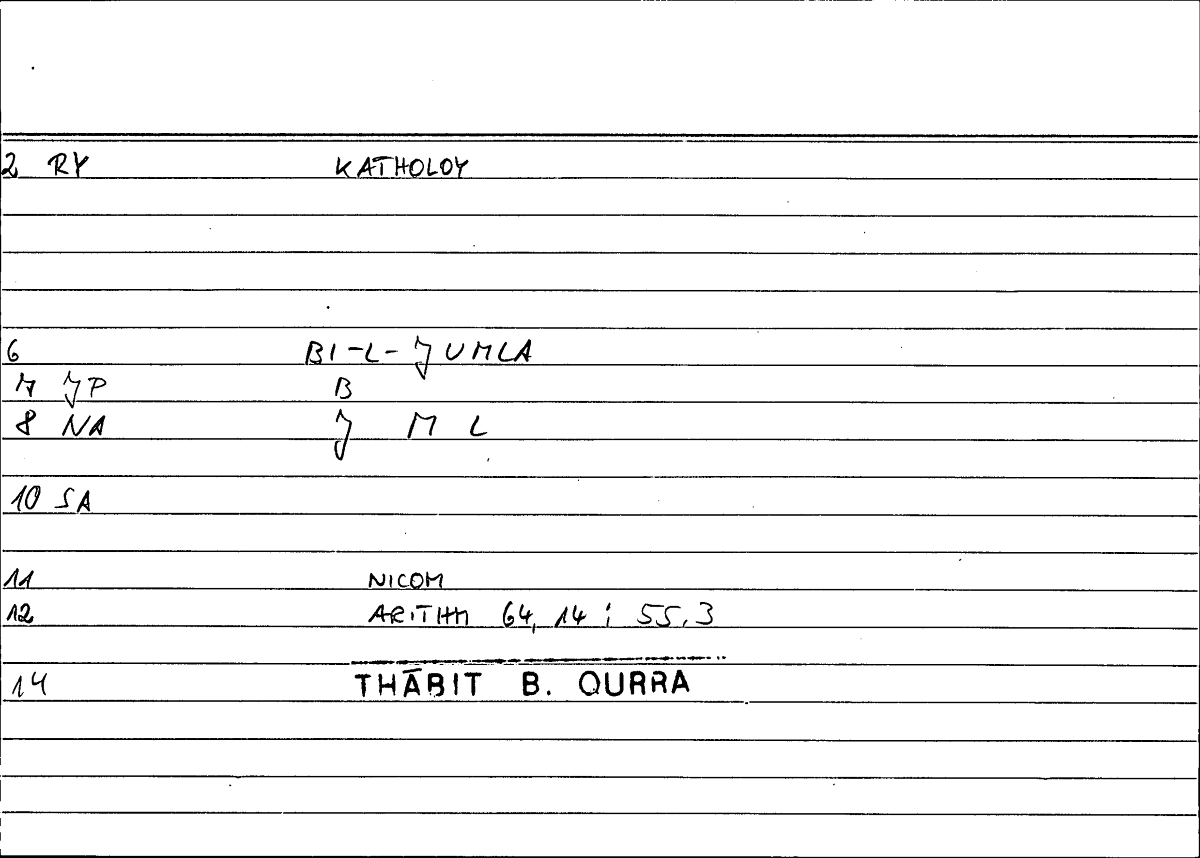 2 RY KATHOLOY
6 BI-L-JUMLA
7 JP B
8 NA J M L
10 SA
11 NICOM
12 ARITHM 64,14 ; 55,3
14 THĀBIT B. QURRA